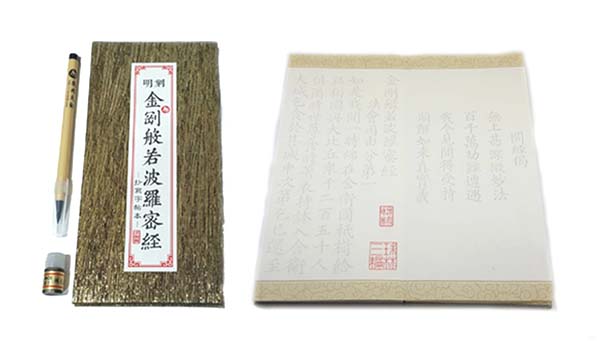 金剛般若波羅密經
開經偈
無上甚深微妙法
百千萬劫難遭遇
我今見聞得受持
願解如來真實義
金剛般若波羅密經
法會因由分第一
如是我聞一時佛在舍衛國祇樹給
孤獨園與大比丘眾千二百五十人
俱爾時世尊食時著衣持缽入舍衛
大城乞食於其城中次第乞已還至